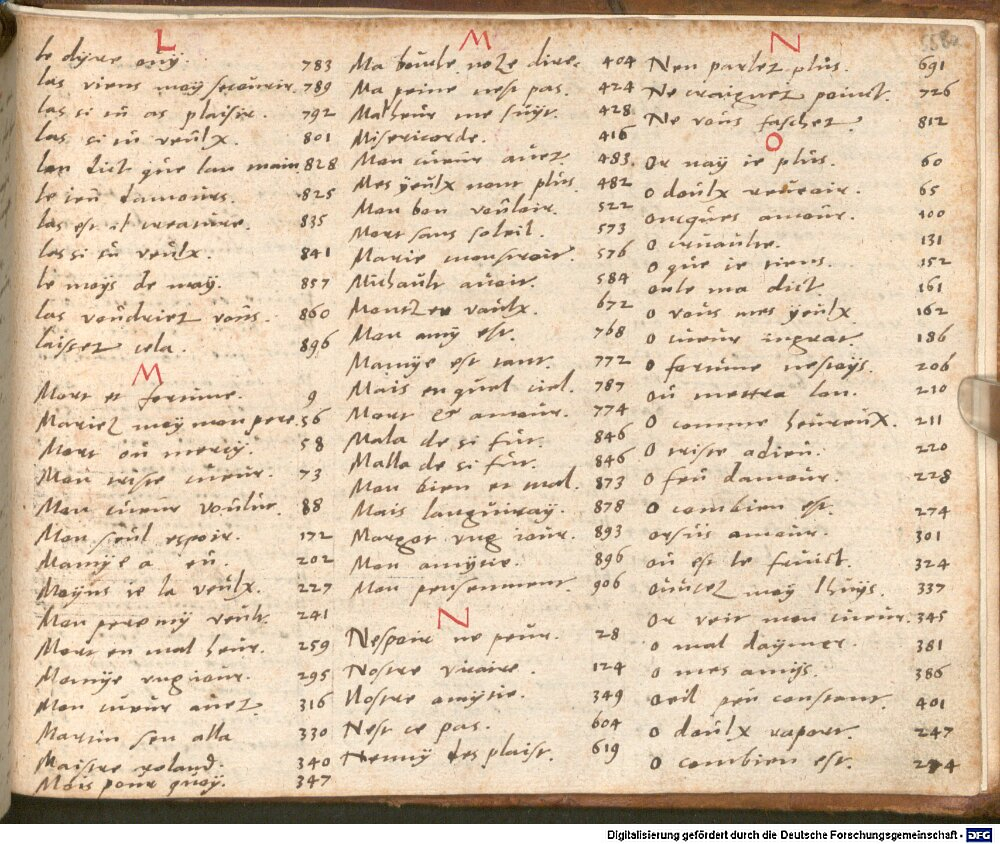 L
Le dyre ouy. 783
Las viens moy secourir. 789
Las si tu as plaisir. 792
Las si tu veulx. 801
Lon dict que lan main 828
Le ieu damours. 825
Las est il creature. 835
Las si tu veulx. 841
Le moys de may. 857
Las voudriez vous. 860
Laissez cela. 896
M
Mort et fortune. 9
Mariez moy mon pere. 56
Mort ou mercy. 58
Mon triste cueur. 73
Mon cueur voulut. 88
Mon seul espoir. 172
Mamye a eu. 202
Moyns ie la veulx. 227
Mon pere my veult. 241
Mort en mal heur. 259
Mamye ung iour. 295
Mon cueur avez. 316
Martin sen alla 330
Maistre roland. 340
Mais pour quoy. 347
M
Ma bouche noze dire. 404
Ma peine nest pas. 424
Malheur me suyt. 428
Misericorde. 416
Mon cueur avez. 483
Mes yeulx nont plus. 482
Mon bon vouloir. 522
Mort sans soleil. 573
Marie monstroit 576
Michault avoit. 584
Montez ou vaulx. 672
Mon amy est. 768
Mamye est tant. 772
Mais en quel ciel. 787
Mort et amour. 774
Mala de si fut. 846
Malla de si fut. 846
Mon bien et mal. 873
Mais languiray. 878
Margot ung iour. 893
Mon amytie. 896
Mon pensement. 906
N
Nespoir ne peur. 28
Nostre vicaire. 124
Nostre amytie. 349
Nest ce pas. 604
Nenny desplaist. 619
N
Nen parlez plus. 691
Ne craignez poinct. 726
Ne vous faschez. 812
O
Or nay ie plus. 60
O doulx reveoir. 65
Oncques amour. 100
O cruaulte. 131
O que ie tiens. 152
On le ma dict. 161
O vous mes yeulx. 162
O cueur ingrat. 186
O fortune nestoys. 206
Ou mettra lon. 210
O comme heureux. 211
O triste adieu. 220
O feu damour. 228
O combien est. 274
Orsus amour. 301
Ou est le fruict. 324
Ouurez moy lhuys. 337
Or voit mon cueur. 345
O mal daymer. 381
O mes amys. 386
Oeil peu constant. 401
O doulx raport. 247
O combien est. 274
Digitalisierung gefördert durch die Deutsche Forschungsgemeinschaft - DFG